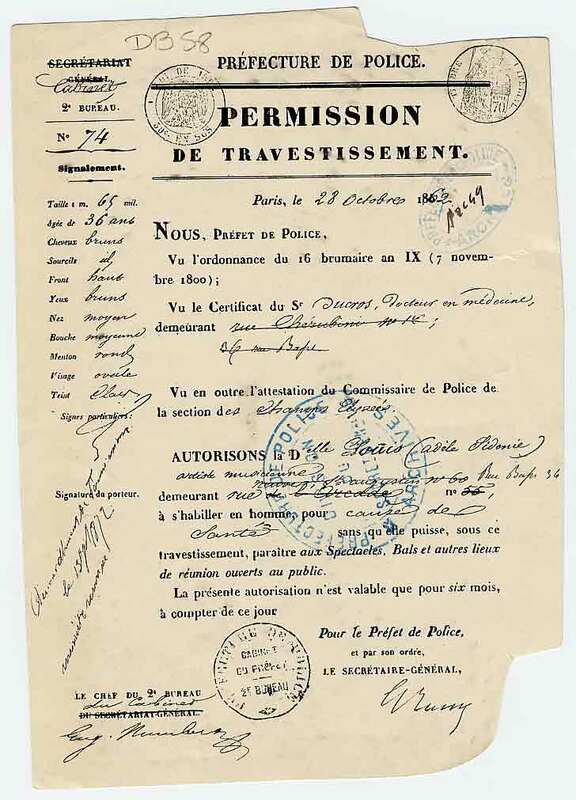 DB58
SECRÉTARIAT
GÉNÉRAL.
Cabinet
2e BUREAU.
No 74
Signalement.
Taille 1 m. 65 mil.
Agée de 36 ans
Cheveux bruns
Sourcils id
Front haut
Yeux bruns
Nez moyen
Bouche moyenne
Menton rond
Visage ovale
Teint clair
Signes particuliers:
Signature du porteur.
PRÉFECTURE DE POLICE.
PERMISSION
DE TRAVESTISSEMENT.
Paris, le 28 Octobre 1862
NOUS, PRÉFET DE POLICE,
Vu l'ordonnance du 16 brumaire an IX (7 novem-
bre 1800);
Vu le Certificat du Sr Ducros, Docteur en médecine,
demeurant rue Chérubini no ;
36 rue
Vu en outre l'attestation du Commissaire de Police de
la section des Champs Elysées
AUTORISONS la Dlle Louis (Adèle Sidonie)
artiste musicienne
no 60 Rue 36
demeurant rue de no
à s'habiller en homme, pour cause de
Santé sans qu'elle puisse, sous ce
travestissement, paraître aux Spectacles, Bals et autres lieux
de réunion ouverts au public.
La présente autorisation n'est valable que pour six mois,
à compter de ce jour
Pour le Préfet de Police,
et par son ordre,
LE SECRÉTAIRE-GÉNÉRAL,
PRÉFECTURE DE POLICE
CABINET
DU PRÉFET
2E BUREAU
LE CHEF DU 2e BUREAU
du Cabinet
DU SECRÉTARIAT-GÉNÉRAL.